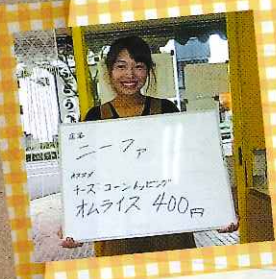 店名
ニーファ
オススメ
チーズコーントッピング
オムライス 400円